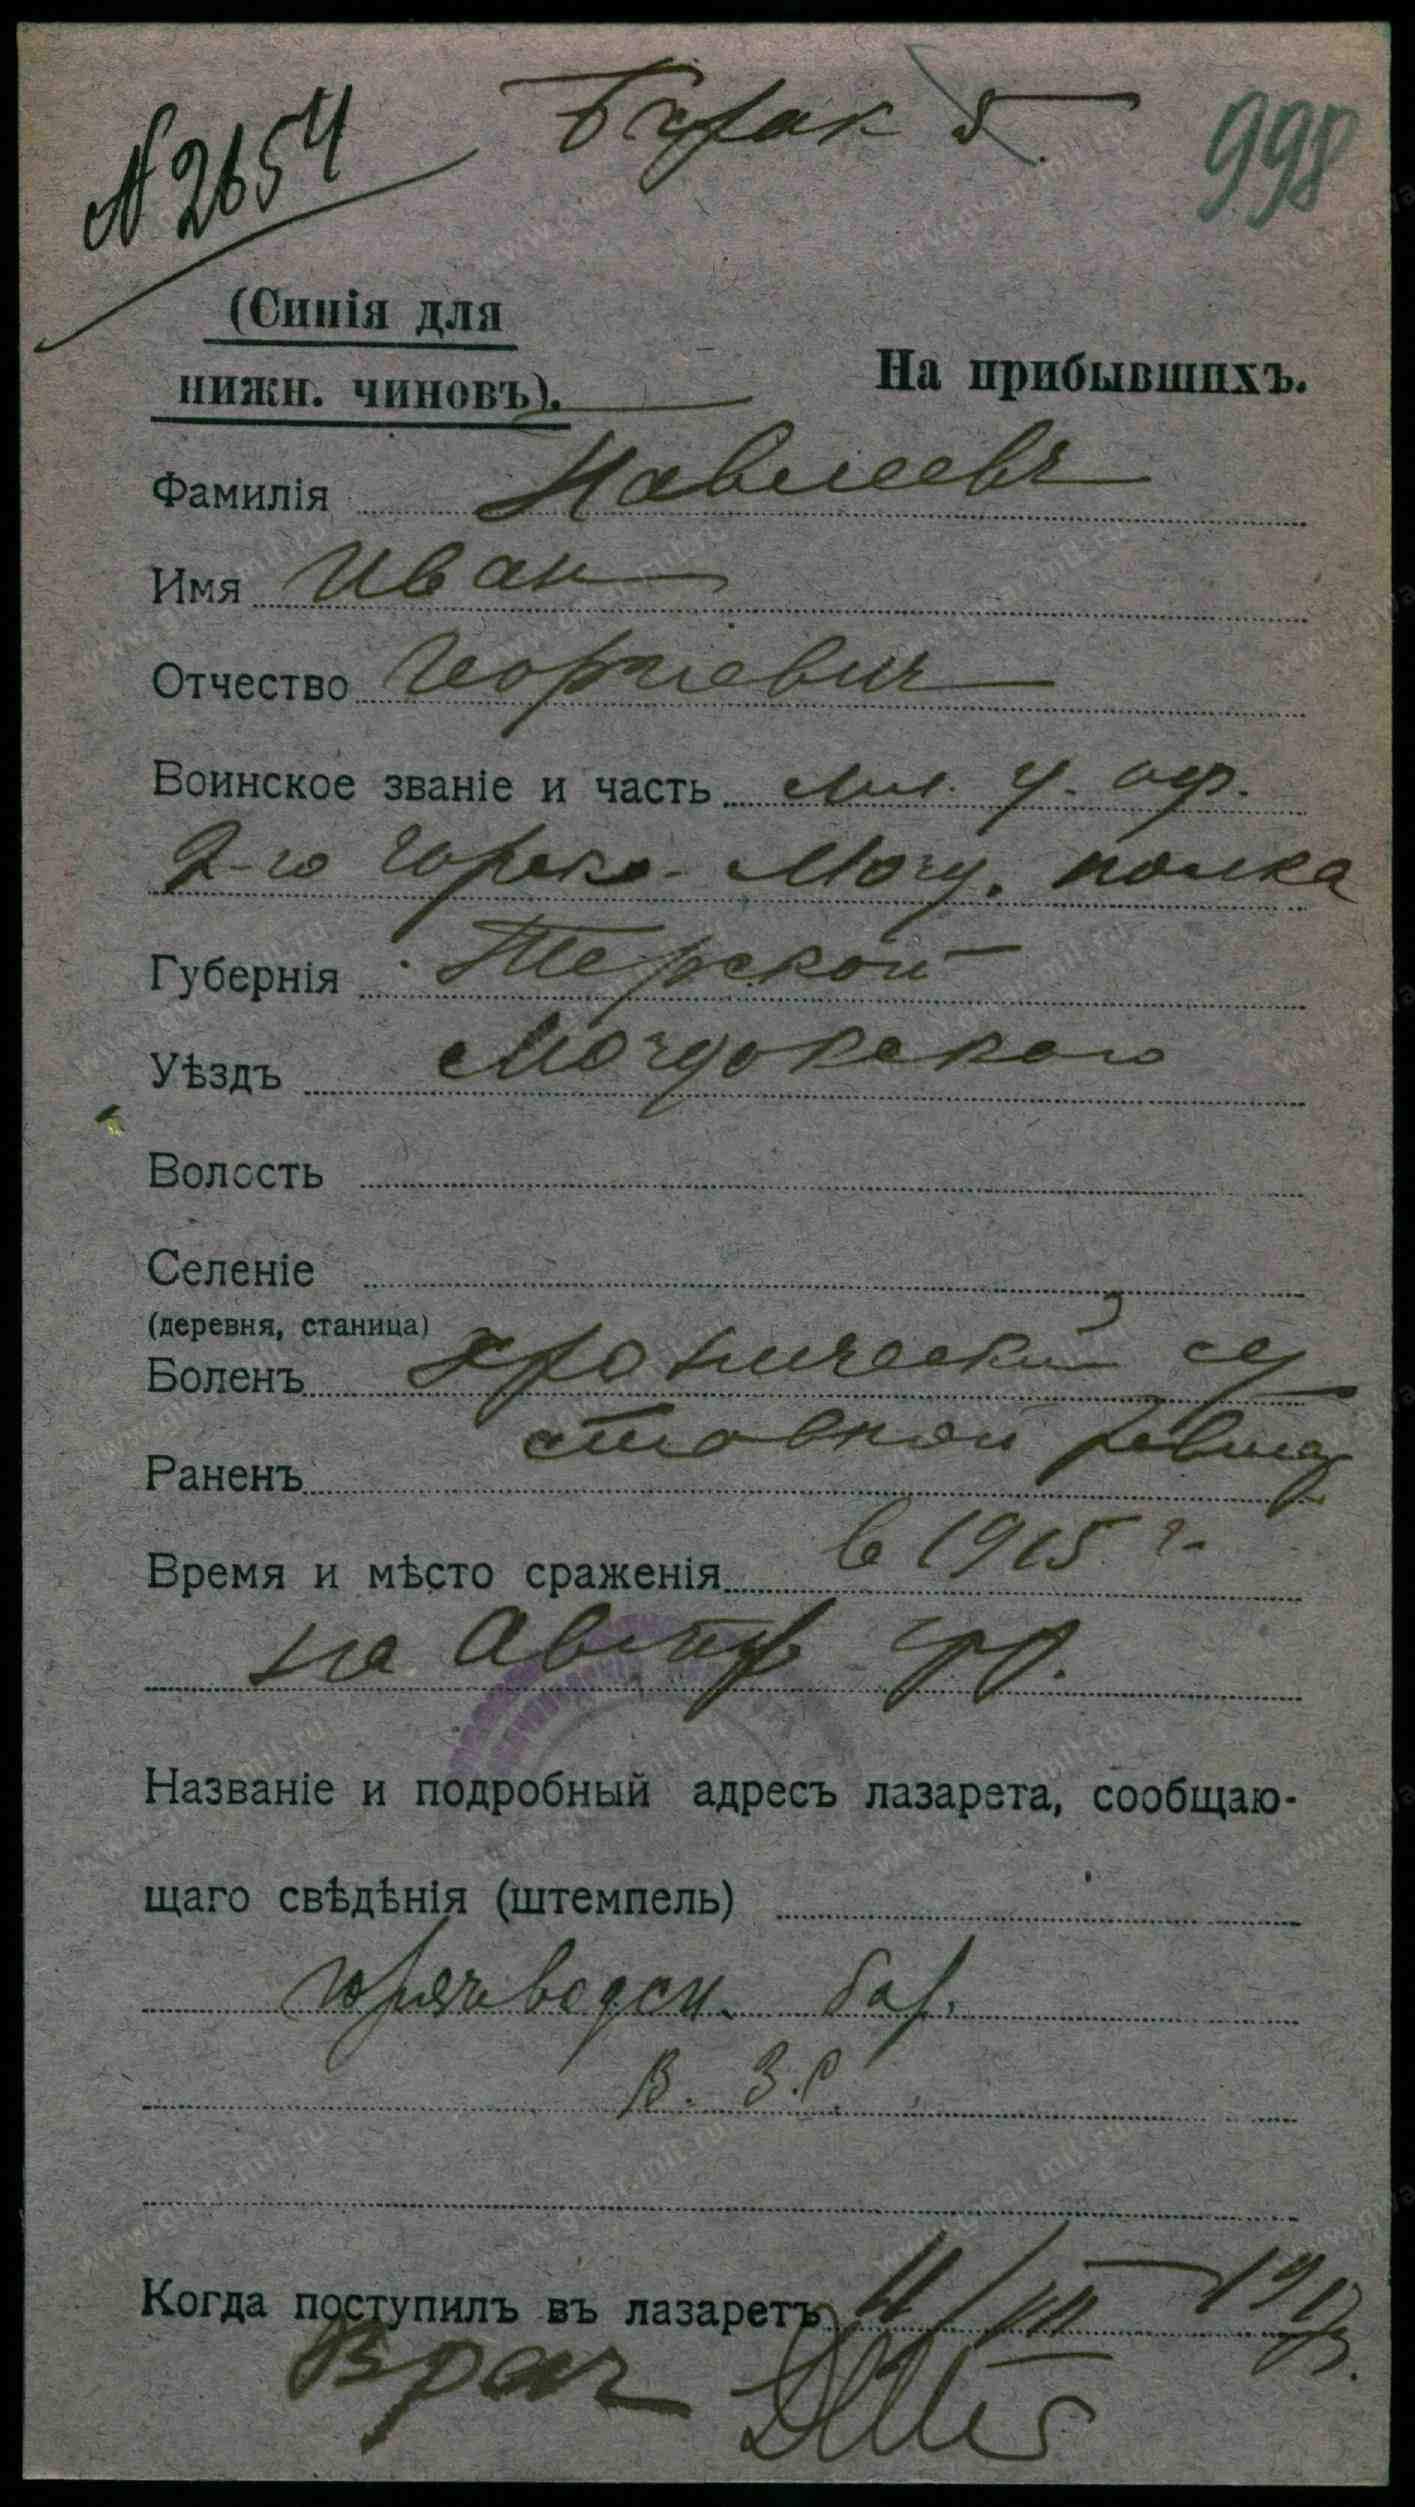 № 2654 Барак 5. 998
(Синія для
нижн. чиновъ).
На прибывшихъ.
Фамилія Навлеевъ
Имя Иван
Отчество Георгіевич
Воинское званіе и часть мл. у. оф.
2-го Горско-Мозд. полка
Губернія Терской
Уѣздъ Моздокского
Волость
Селеніе
(деревня, станица)
Боленъ хронический су
Раненъ ставной ревма
Время и мѣсто сраженія в 1915 г.
на Австр фр.
Названіе и подробный адресъ лазарета, сообщаю-
щаго свѣдѣнія (штемпель)
Горячеводск. бар.
В. З. С.
Когда поступилъ въ лазаретъ 11/VII 1917
Врач